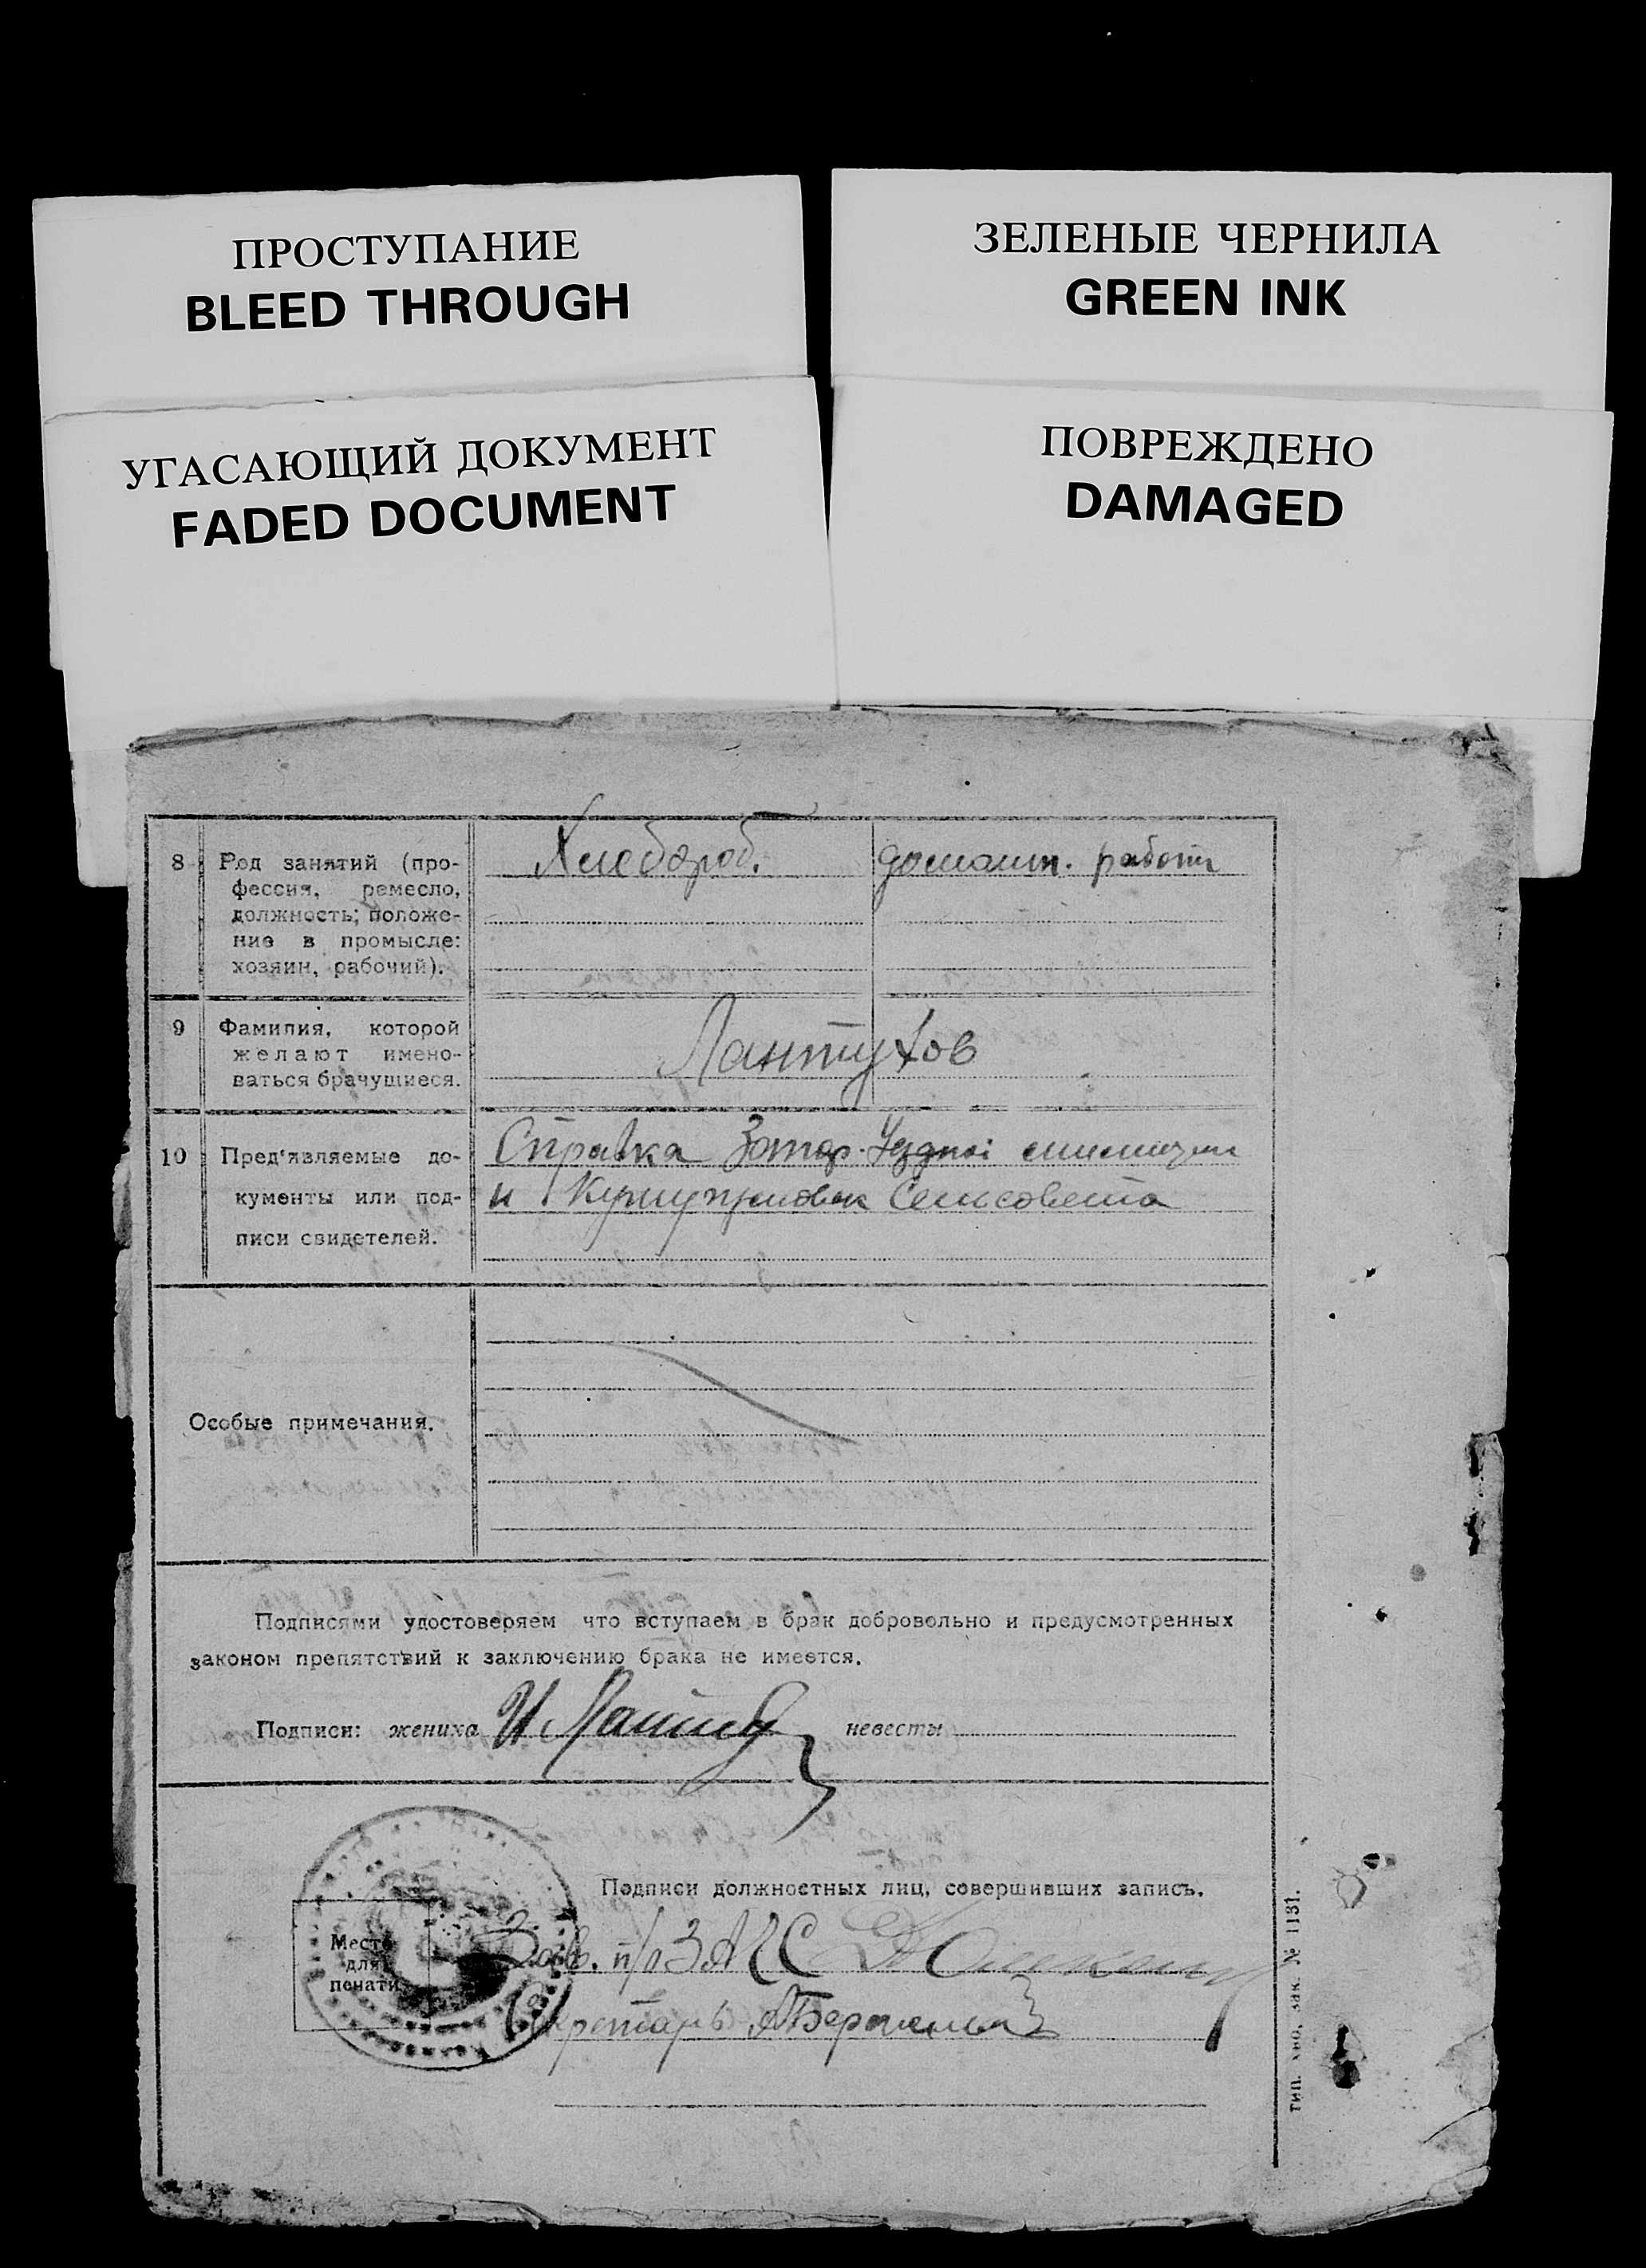 ПРОСТУПАНИЕ
BLEED THROUGH
ЗЕЛЕНЫЕ ЧЕРНИЛА
GREEN INK
УГАСАЮЩИЙ ДОКУМЕНТ
FADED DOCUMENT
ПОВРЕЖДЕНО
DAMAGED
8 Род занятий (про-
фессия, ремесло,
должность; положе-
ние в промысле:
хозяин, рабочий).
Хлебороб.
домашн. работы
9 Фамилия, которой
желают имено-
ваться брачущиеся.
Лантухов
10 Пред'являемые до-
кументы или под-
писи свидетелей.
Справка милиции
и Сельсовета
Особые примечания.
Подписями удостоверяем что вступаем в брак добровольно и предусмотренных
законом препятствий к заключению брака не имеется.
Подписи: жениха И невесты
Подписи должностных лиц, совершивших запись.
Место
для
печати
Зав. п/о ЗАГС
Секретарь
тип. зак. № 1131.